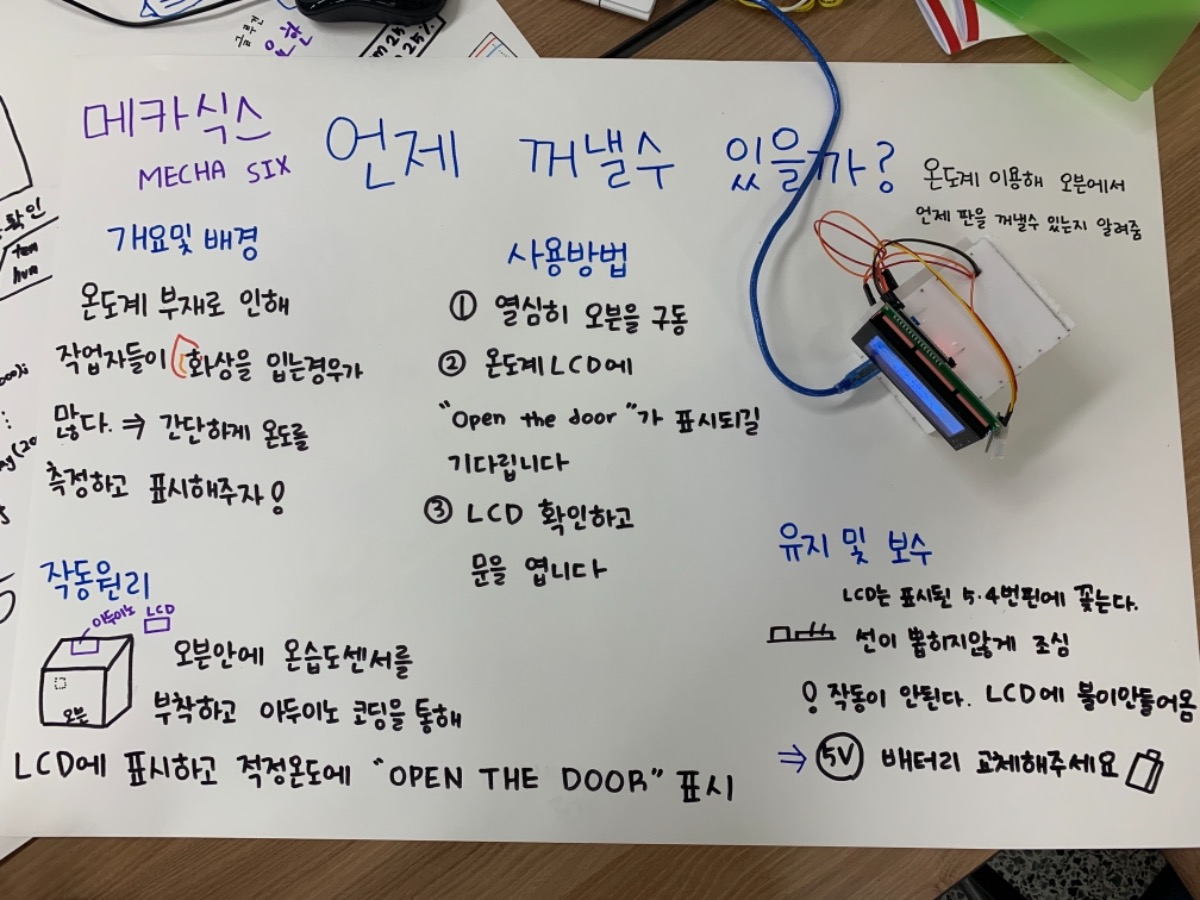 글루건
메카식스
MECHA SIX
언제 꺼낼수 있을까?
온도계 이용해 오븐에서
언제 판을 꺼낼수 있는지 알려줌
개요및 배경
온도계 부재로 인해
작업자들이 화상을 입는경우가
많다. ⇒ 간단하게 온도를
측정하고 표시해주자!
사용방법
① 열심히 오븐을 구동
② 온도계 LCD에
"Open the door"가 표시되길
기다립니다
③ LCD 확인하고
문을 엽니다
작동원리
아두이노 LCD
오븐
오븐안에 온습도센서를
부착하고 아두이노 코딩을 통해
LCD에 표시하고 적정온도에 "OPEN THE DOOR" 표시
유지 및 보수
LCD는 표시된 5.4번핀에 꽂는다.
선이 뽑히지않게 조심
! 작동이 안된다. LCD에 불이안들어옴
⇒ 5V 배터리 교체해주세요
확인
tem
hum